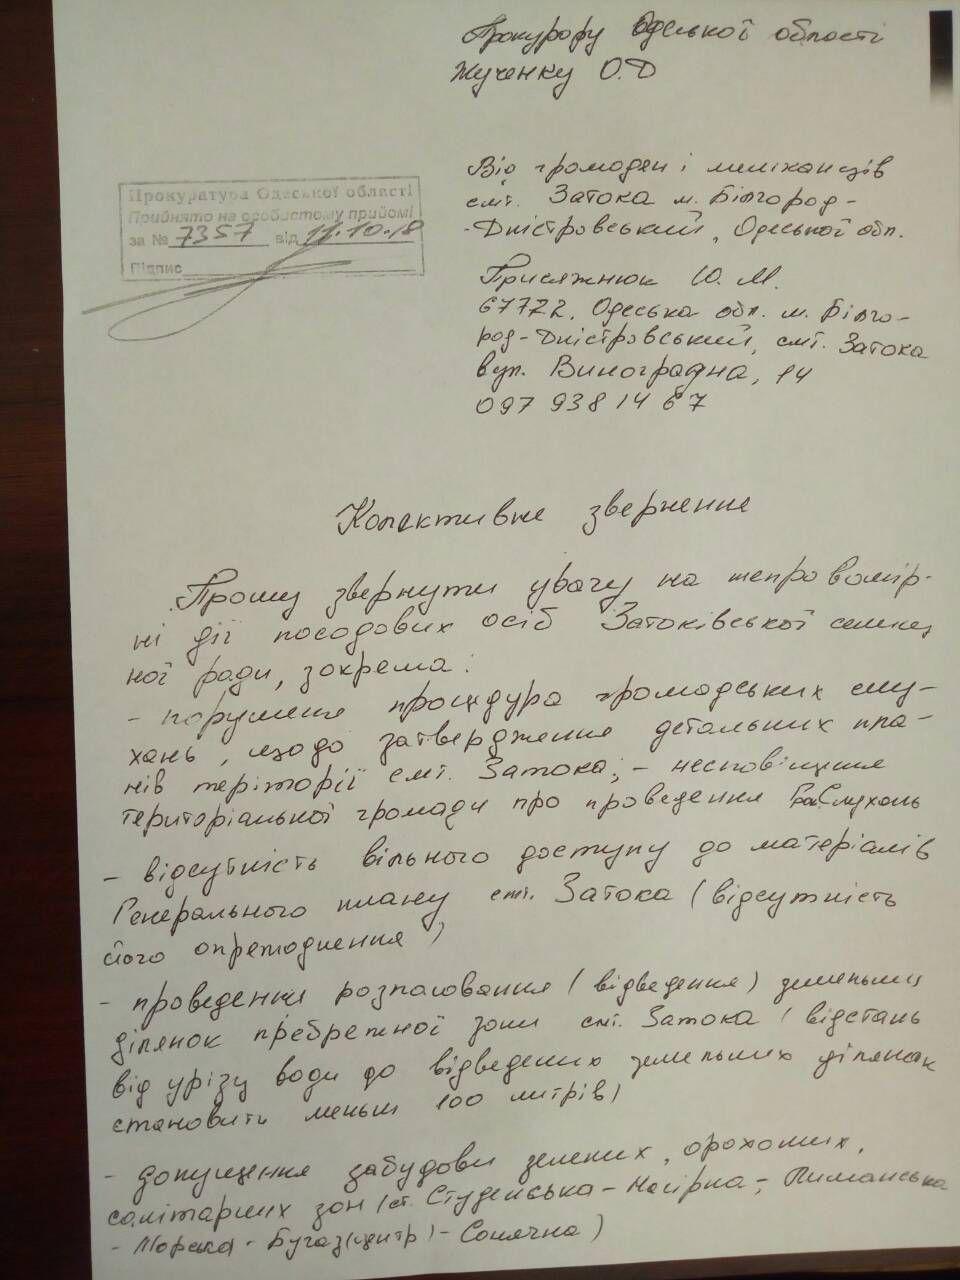 Прокурору Одеської області
Жученку О.Д
Прокуратура Одеської області
Прийнято на особистому прийомі
за № 7357 від 11.10.18
Підпис
Від громадян і мешканців
смт. Затока м. Білгород-
-Дністровський, Одеської обл.
Присяжнюк Ю. М.
67772, Одеська обл. м. Білго-
род-Дністровський, смт. Затока
вул. Виноградна, 14
097 938 14 67
Колективне звернення
Прошу звернути увагу на неправомір-
ні дії посадових осіб Затоківської селищ
ної ради, зокрема:
- порушення процедура громадських слу-
хань, щодо затвердження детальних пла-
нів території смт. Затока; - несповіщення
територіальної громади про проведення Гр.Слухань
- відсутність вільного доступу до матеріалів
Генерального плану смт. Затока (відсутність
його опреюднення)
- проведення розпаювання (відведення) земельних
ділянок пребрежної зони смт. Затока (відстань
від урізу води до відведених земельних ділянок
становить меньш 100 митрів)
- допущення забудови зелених, охоронних,
санітарних зон (ст. Студенська - Нагірна -; Лиманська
- Морська - Бугаз(центр) - Сонячна)